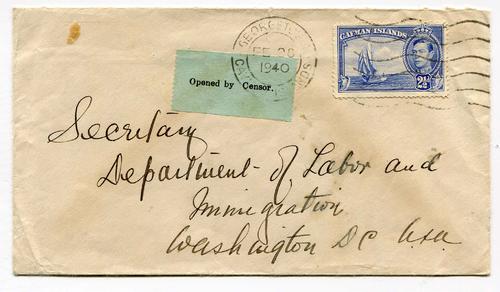 GEORGETOWN
FE 28
1940
CAYMAN ISLANDS
2½d
Opened by Censor.
Secretary
Department of Labor and
Immigration
Washington DC USA